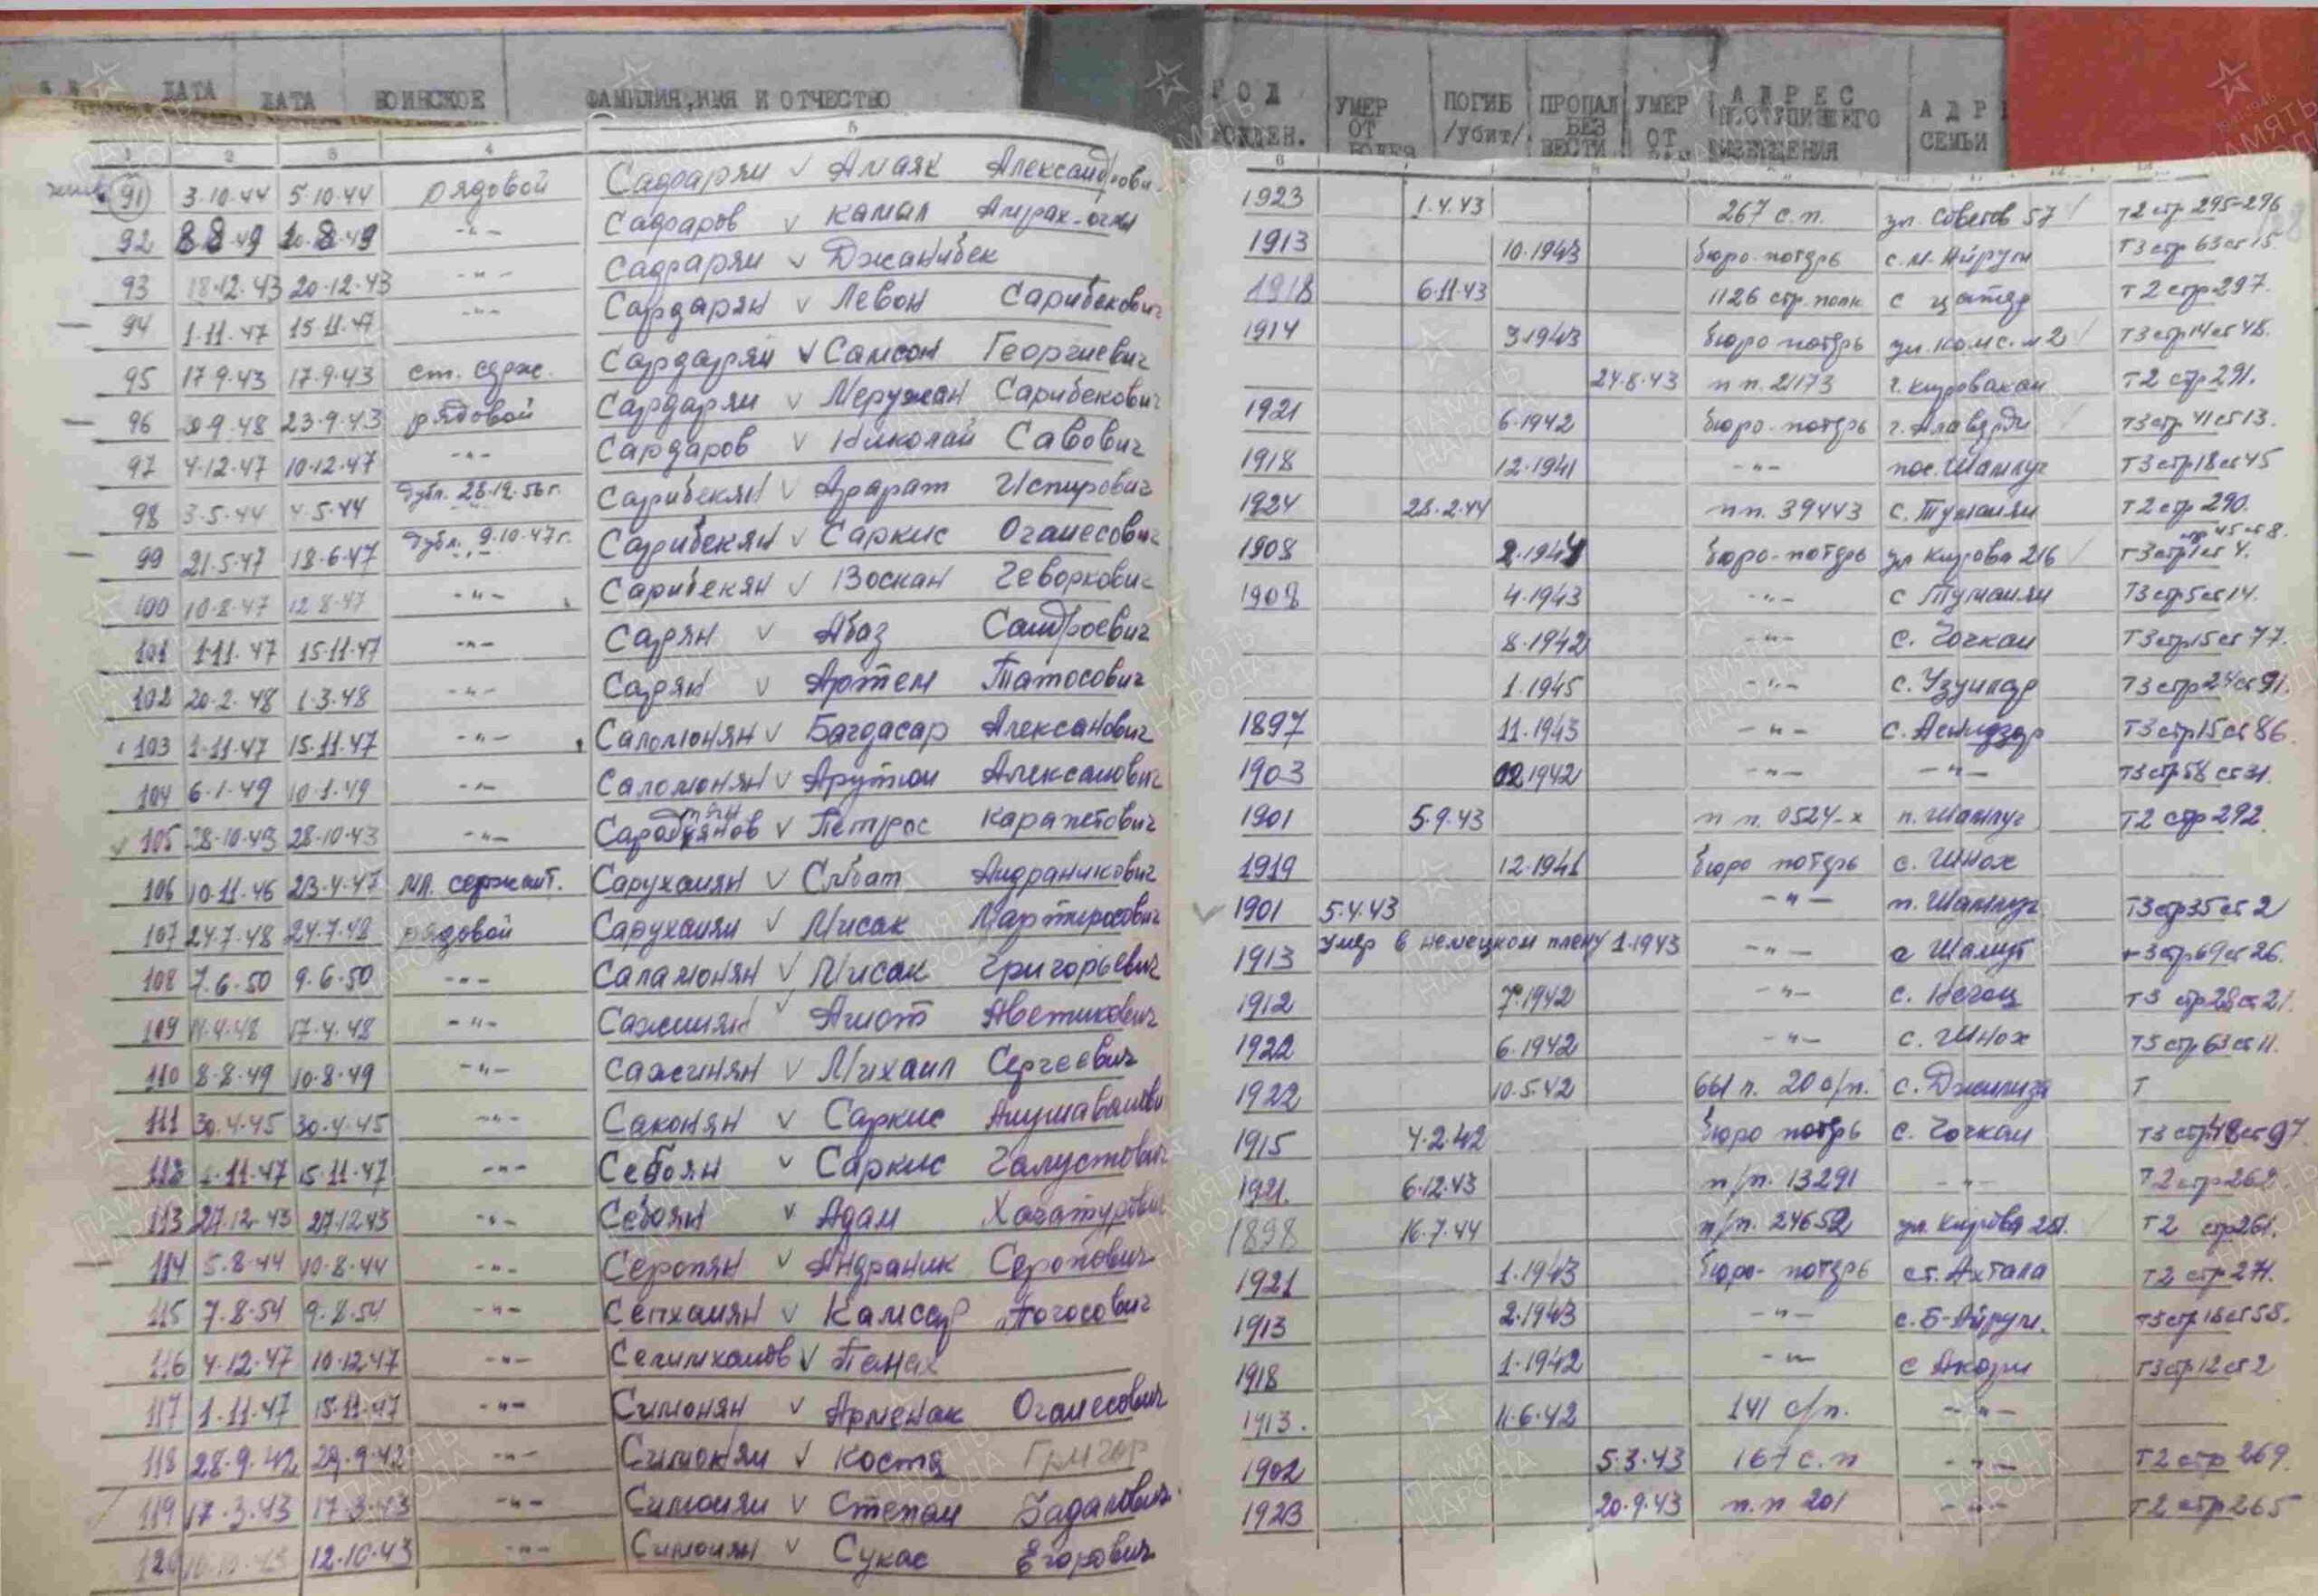 ДАТА ДАТА ВОИНСКОЕ ФАМИЛИЯ, ИМЯ И ОТЧЕСТВО ГОД РОЖДЕН. УМЕР ОТ ПОГИБ /убит/ ПРОПАЛ БЕЗ ВЕСТИ УМЕР ОТ АДРЕС ПОСТУПИВШЕГО ИЗВЕЩЕНИЯ АДР СЕМЬИ
1 2 3 4 5 6
91 3.10.44 5.10.44 рядовой Сардарян Амаяк 1923 1.4.43 267 с.п. ул. Советов 57 Т2 стр 295-296
92 -"- Сардаров Камал 1913 10.1943 бюро потерь с. М. Айрум Т3 стр 63 ст 15.
93 18.12.43 20.12.43 -"- Сардарян Джанибек 1918 6.11.43 1126 стр. полк с Цатер Т2 стр 297.
94 1.11.47 15.11.47 -"- Сардарян Левон Сарибекович 1914 3.1943 бюро потерь ул. Комс. Т3 стр 14 ст 48.
95 17.9.43 17.9.43 ст. серж. Сардарян Самсон Георгиевич 24.8.43 п п. 21173 г. Кировакан Т2 стр 291.
96 23.9.43 рядовой Сардарян Меружан Сарибекович 1921 6.1942 бюро потерь г. Алаверди Т3 стр 41 ст 13.
97 4.12.47 10.12.47 -"- Сардаров Николай Савович 1918 12.1941 -"- пос. Шамлуг Т3 стр 18 ст 45
98 3.5.44 4.5.44 дубл. 28.12.56 г. Сарибекян Арарат Испирович 1924 28.2.44 п п. 39443 с. Туманян Т2 стр 290.
99 21.5.47 18.6.47 дубл. 9.10.47 г. Сарибекян Саркис Оганесович 1908 бюро потерь ул Кирова 216 Т3 стр 1 ст 4.
100 10.8.47 12.8.47 -"- Сарибекян Воскан Геворкович 1908 4.1943 -"- с Туманян Т3 стр 5 ст 14.
101 1.11.47 15.11.47 -"- Сарян Абаз 8.1942 -"- с. Чочкан Т3 стр 15 ст 77.
102 20.2.48 1.3.48 -"- Сарян Артем Татосович 1.1945 -"- с. Узунлар Т3 стр 24 ст 91.
103 1.11.47 15.11.47 -"- Саломонян Багдасар Алексанович 1897 11.1943 -"- Т3 стр 15 ст 86.
104 6.1.49 10.1.49 -"- Саломонян Арутюн Алексанович 1903 -"- -"- Т3 стр 58 ст 31.
105 28.10.43 28.10.43 -"- Петрос Карапетович 1901 5.9.43 п п. 0524-х п. Шамлуг Т2 стр 292
106 10.11.46 23.4.47 мл. сержант. Саруханян Смбат Андраникович 1919 12.1941 бюро потерь с. Шнох
107 24.7.48 24.7.48 рядовой Саруханян Мисак Мартиросович 1901 5.4.43 -"- п. Шамлуг Т3 стр 35 ст 2
108 7.6.50 9.6.50 -"- Саламонян Мисак Григорьевич 1913 умер в немецком плену 1.1943 -"- с Шамут Т3 стр 69 ст 26.
109 17.4.48 -"- Ашот Аветикович 1912 7.1942 -"- с. Негоц Т3 стр 28 ст 21.
110 8.8.49 10.8.49 -"- Сакинян Михаил Сергеевич 1922 6.1942 -"- с. Шнох Т3 стр 63 ст 11.
111 30.4.45 30.4.45 -"- Саконян Саркис 1922 10.5.42 661 п. с. Джилиза Т
112 1.11.47 15.11.47 -"- Себоян Саркис Галустович 1915 4.2.42 бюро потерь с. Чочкан Т3 стр 48 ст 97
113 27.12.43 27.12.43 -"- Себоян Адам Хачатурович 1921. 6.12.43 п/п. 13291 -"- Т2 стр 262
114 5.8.44 10.8.44 -"- Серопян Андраник Серопович 1898 16.7.44 п/п. 24652 ул. Кирова Т2 стр 261.
115 7.8.54 9.8.54 -"- Сепханян Камсар Погосович 1921 1.1943 бюро потерь ст. Ахтала Т2 стр 271.
116 4.12.47 10.12.47 -"- Селимханов Панах 1913 2.1943 -"- с. Б-Айрум. Т3 стр 18 ст 58.
117 1.11.47 15.11.47 -"- Симонян Арменак Оганесович 1918 1.1942 -"- с Акори Т3 стр 12 ст 2
118 28.9.42 29.9.42 -"- Симонян Костя Григор 1913. 11.6.42 141 с/п. -"-
119 17.3.43 17.3.43 -"- Симонян Степан 1902 5.3.43 167 с.п -"- Т2 стр 269.
120 12.10.43 -"- Симонян Сукас Егорович 1923 20.9.43 п.п 201 -"- Т2 стр 265